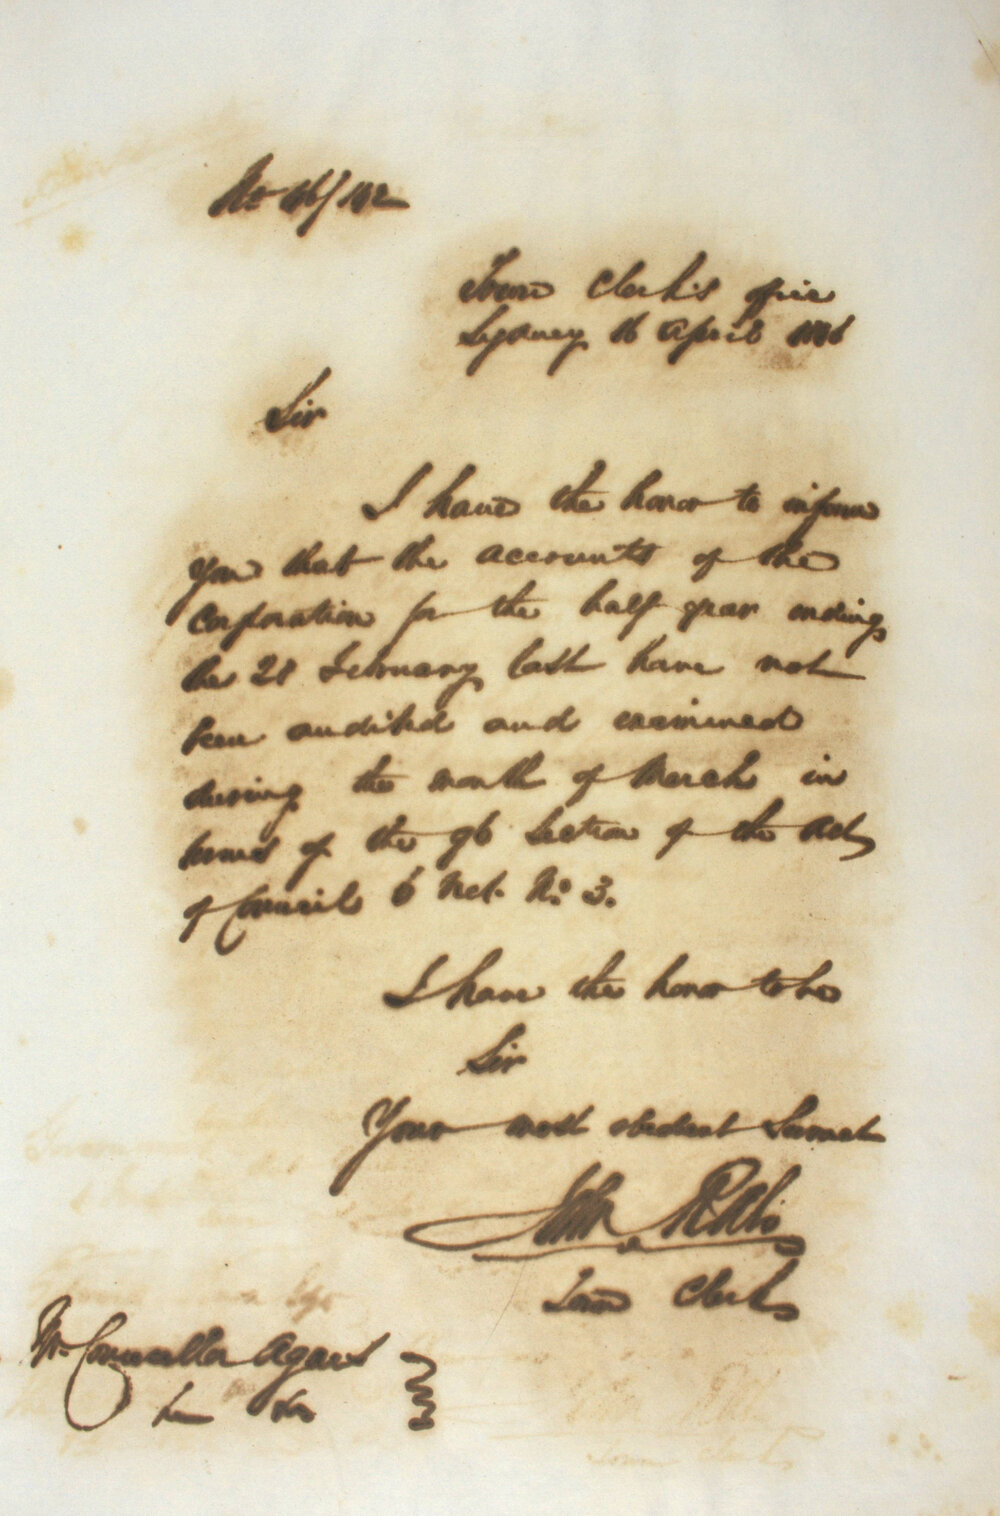 No 46/142
Town Clerk's office
Sydney 16 April 1846
Sir
I have the honor to inform
you that the accounts of the
Corporation for the half year ending
the 28 February last have not
been audited and examined
during the month of March in
terms of the 96 Section of the Act
of Council 6 Vict. No. 3.
I have the honor to be
Sir
Your most obedient Servant
John Rae
Town Clerk
Mr Councillor Agars